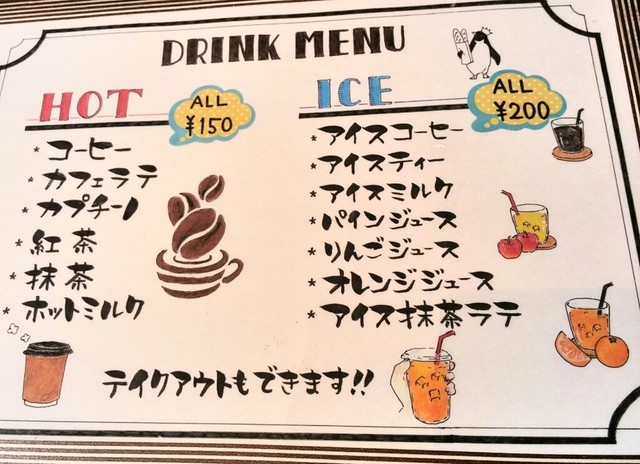 DRINK MENU
HOT
ALL
¥150
* コーヒー
* カフェラテ
* カプチーノ
* 紅茶
* 抹茶
* ホットミルク
ICE
ALL
¥200
* アイスコーヒー
* アイスティー
* アイスミルク
* パインジュース
* りんごジュース
* オレンジジュース
* アイス抹茶ラテ
テイクアウトもできます!!